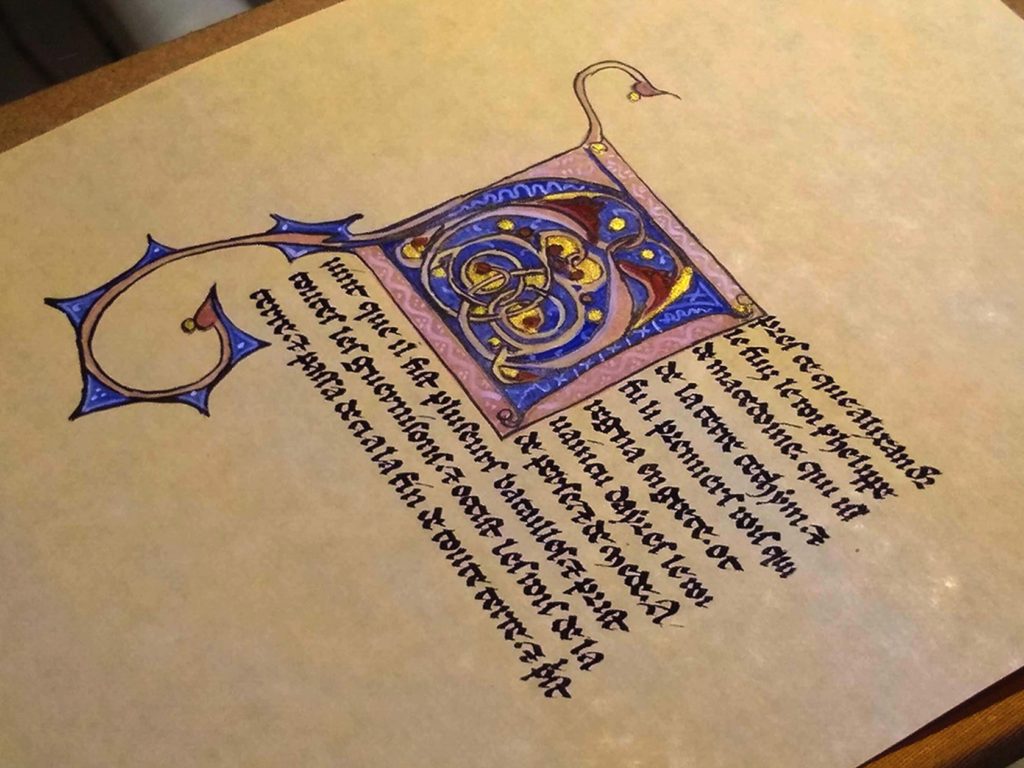 Apres ce que alixandꝛ
le fiuz le roi phelippe
de macedoine. qui ist
de la terre cethÿim ⁊
fu li premiers rois qui
regna en grece ot
uaincu dayres le roi
de perse ⁊ de mede. A
uint que il fist pluseurs batailles ⁊ prist
toutes les guernisons ⁊ occist les rois de la
terre ⁊ passa deci a la fin de toute terre ⁊ pst